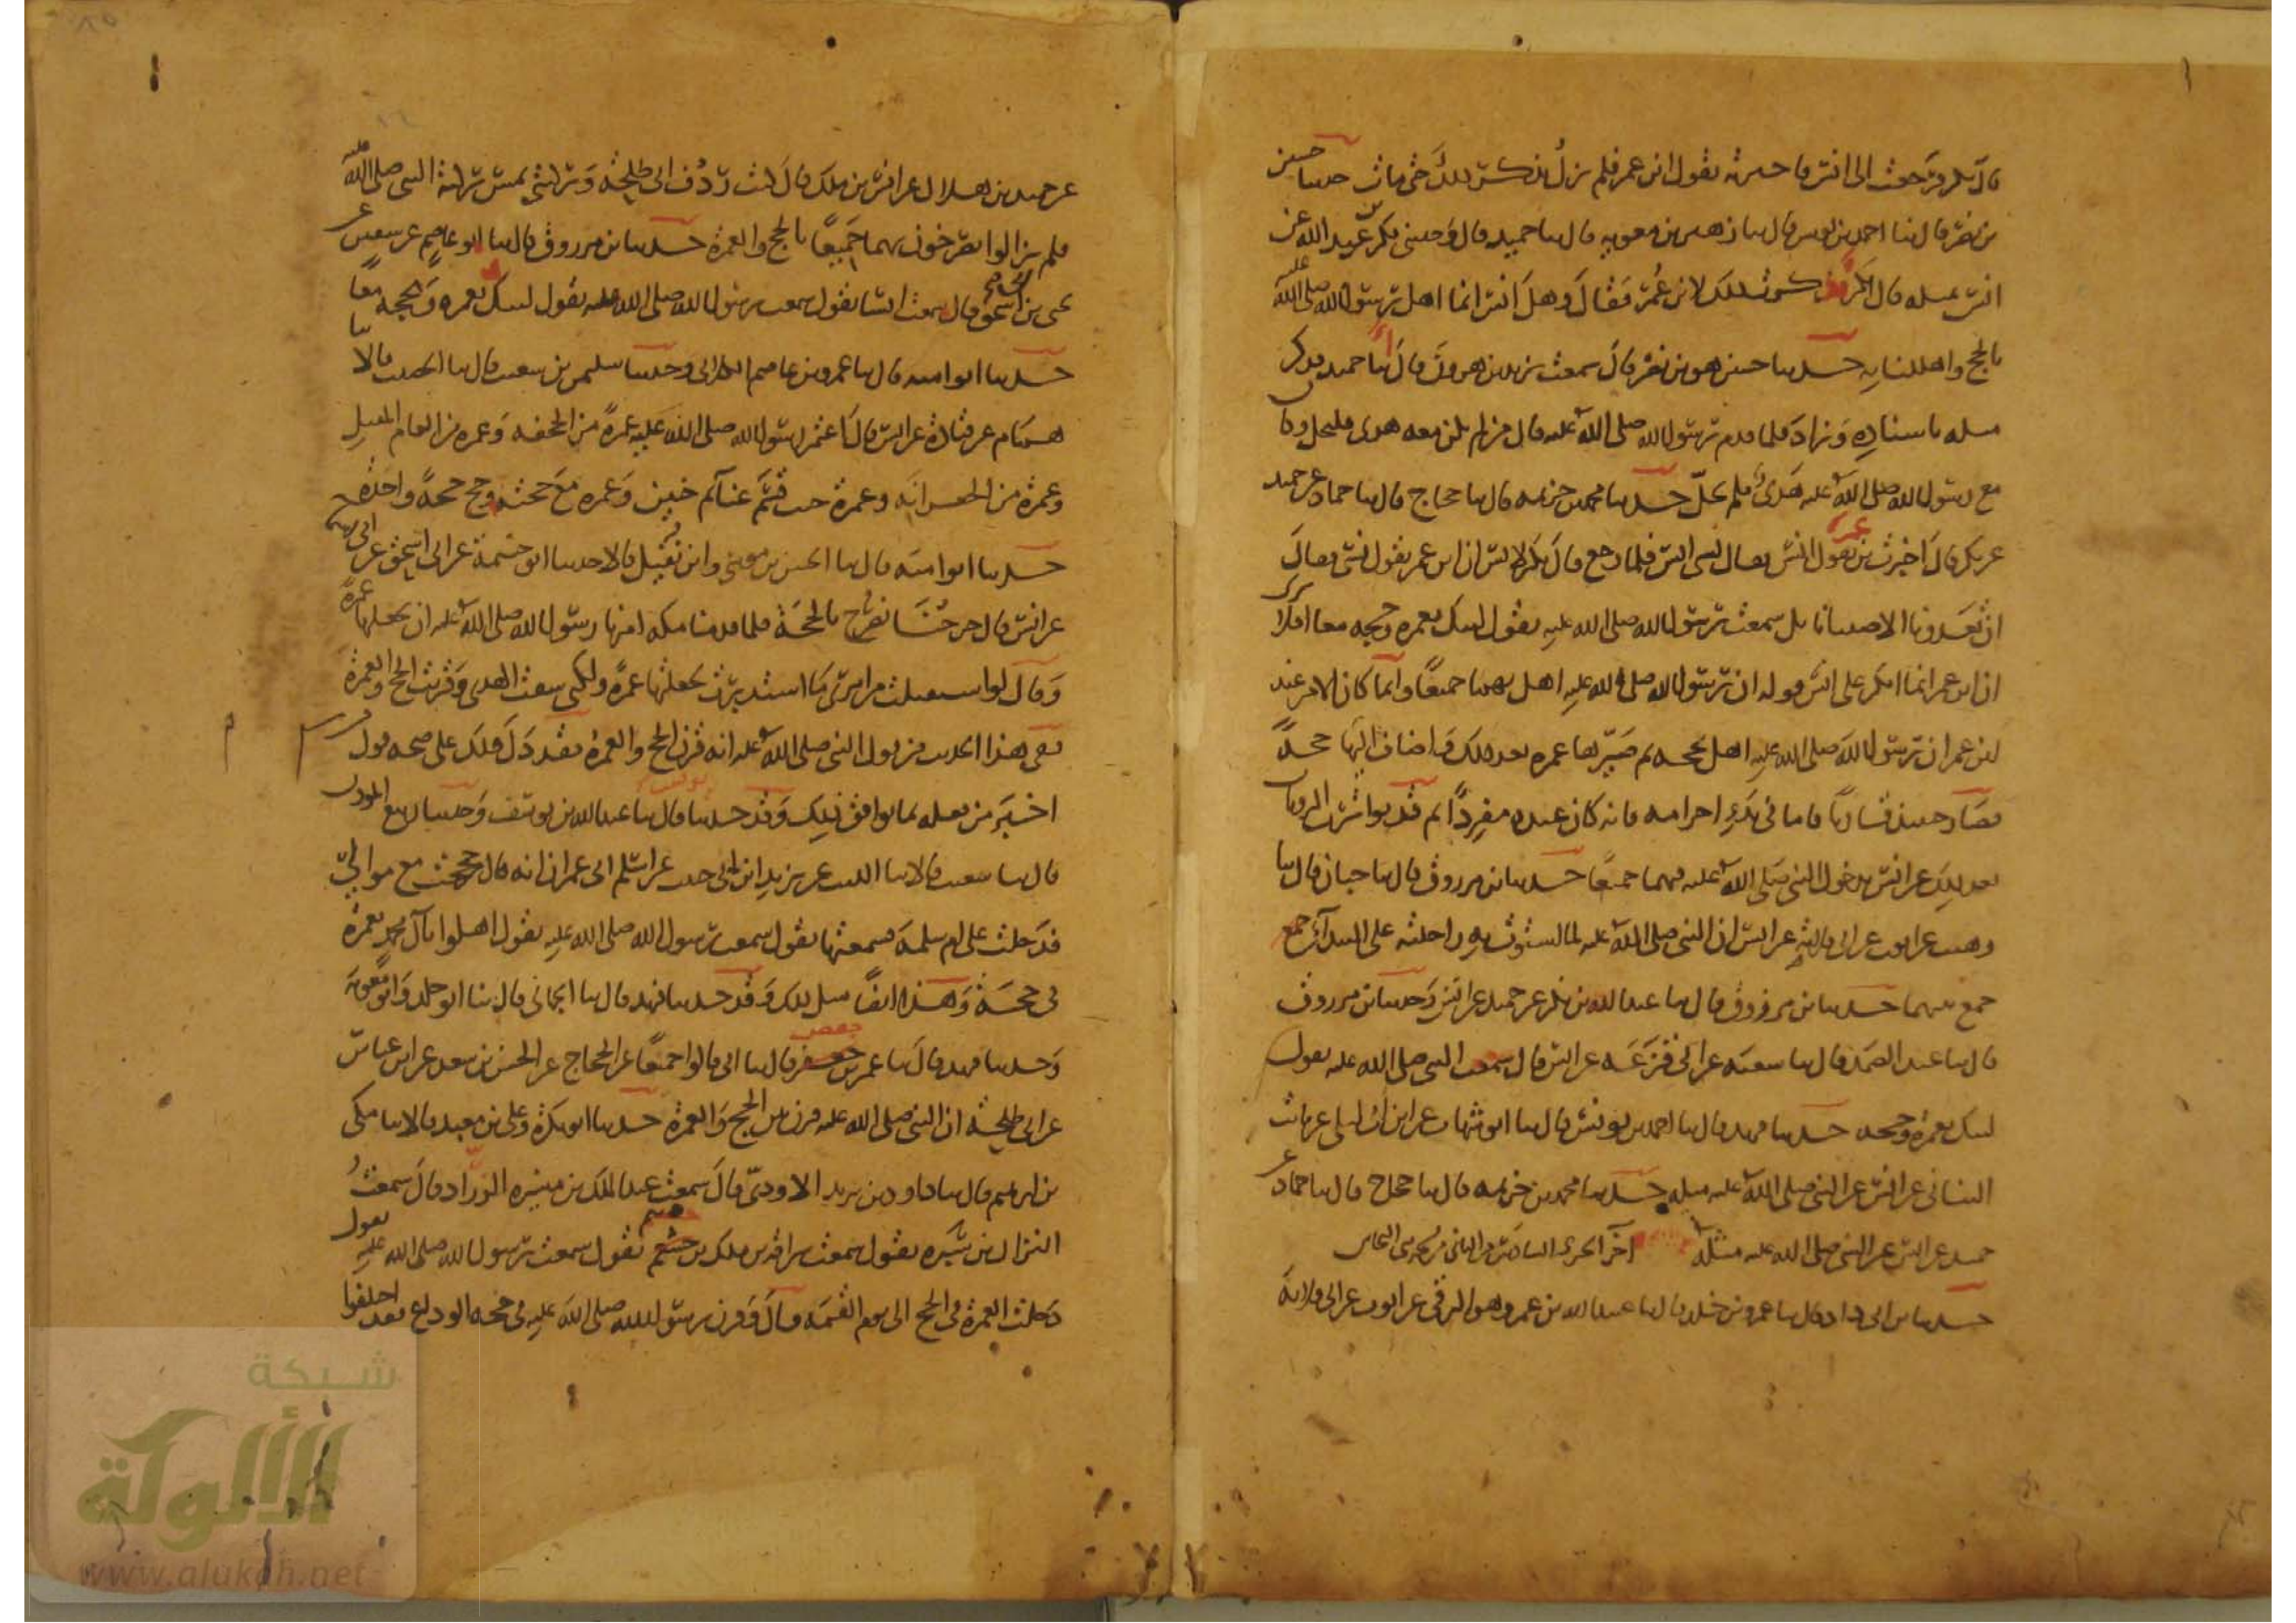 قال بكر فرجعت الى انس فاخبرته بقول ابن عمر فلم يزل يذكر ذلك حتى مات حدثنا حسين
بن نصر قال ثنا احمد بن يونس قال ثنا زهير بن معويه قال ثنا حميد قال وحدثنى بكر بن عبد الله عن
انس بمثله قال بكر فذكرت ذلك لابن عمر فقال وهل انس انما اهل رسول الله صلى الله عليه
بالحج واهللنا به حدثنا حسين هو بن نصر قال سمعت يزيد بن هرون قال انا حميد فذكر
مثله باسناده وزاد فلما قدم رسول الله صلى الله عليه قال من لم يكن معه هدى فليحل وكان
مع رسول الله صلى الله عليه هدى فلم يحل حدثنا محمد بن خزيمه قال ثنا حجاج قال ثنا حماد عن حميد
عن بكر قال اخبرت بن عمر بقول انس فقال نسى انس فلما رجع قال بكر لانس ان ابن عمر يقول نسى فقال
ان تعدونا الا صبيانا بل سمعت رسول الله صلى الله عليه يقول لبيك بعمره وحجه معا افلا ترى
ان ابن عمر انما انكر على انس قوله ان رسول الله صلى الله عليه اهل بهما جميعا وانما كان الامر عند
ابن عمر ان رسول الله صلى الله عليه اهل بحجه ثم صيرها عمره بعد ذلك واضاف اليها حجة
فصار حينئذ قارنا فاما فى بدو احرامه فانه كان عنده مفردا ثم قد تواترت الروايات
بعد ذلك عن انس بدخول النبى صلى الله عليه فيهما جميعا حدثنا بن مرزوق قال ثنا حبان قال ثنا
وهيب عن ايوب عن ابى قلابه عن انس ان النبى صلى الله عليه لما استوت به راحلته على البيداء جمع
جمع بينهما حدثنا بن مرزوق قال ثنا عبد الله بن بكر عن حميد عن انس وحدثنا بن مرزوق
قال ثنا عبد الصمد قال ثنا شعبه عن ابى قزعه عن انس قال سمعت النبى صلى الله عليه يقول
لبيك بعمره وحجه حدثنا فهد قال ثنا احمد بن يونس قال ثنا ابو شهاب عن ابن ابى ليلى عن ثابت
البنانى عن انس عن النبى صلى الله عليه مثله حدثنا محمد بن خزيمه قال ثنا حجاج قال ثنا حماد عن
حميد عن انس عن النبى صلى الله عليه مثله آخر الجزء السادس
حدثنا بن ابى داود قال ثنا عمرو بن خلد قال ثنا عبيد الله بن عمرو وهو الرقى عن ايوب عن ابى قلابه
عن حميد بن هلال عن انس بن ملك قال كنت ردف ابى طلحة وركبتى تمس ركبة النبى صلى الله عليه
فلم يزالوا يصرخون بهما جميعا بالحج والعمره حدثنا بن مرزوق قال ثنا ابو عاصم عن سفين عن
يحيى بن ابى اسحق قال سمعت انسا يقول سمعت رسول الله صلى الله عليه يقول لبيك بعمره وحجه معا
حدثنا ابو اميه قال ثنا عمرو بن عاصم الكلابى وحدثنا سليمن بن شعيب قال ثنا الخصيب قالا ثنا
همام عن قتادة عن انس قال اعتمر رسول الله صلى الله عليه عمرة من الجحفه وعمره من العام المقبل
وعمره من الجعرانه وعمره حيث قسم غنائم حنين وعمره مع حجته وحج حجة واحدة
حدثنا ابو اميه قال ثنا الحسن بن موسى وابن نفيل قالا حدثنا ابو خيثمة عن ابى اسحق عن ابى اسما
عن انس قال خرجنا نصرخ بالحجة فلما قدمنا مكه امرنا رسول الله صلى الله عليه ان نجعلها عمرة
وقال لو استقبلت من امرى ما استدبرت لجعلتها عمرة ولكنى سقت الهدى وقرنت الحج والعمرة
ففى هذا الحديث من قول النبى صلى الله عليه انه قرن الحج والعمرة فقد دل ذلك على صحه قول
اخبر من فعله بما يوافق ذلك وقد حدثنا يونس قال ثنا عبد الله بن يوسف وحدثنا ربيع المؤذن
قال ثنا شعيب قالا ثنا الليث عن يزيد ابن ابى حبيب عن اسلم ابى عمران انه قال حججت مع موالى
فدخلت على ام سلمة فسمعتها تقول سمعت رسول الله صلى الله عليه يقول اهلوا يا آل محمد بعمرة
فى حجة وهذا ايضا مثل ذلك وقد حدثنا فهد قال ثنا الحمانى قال ثنا ابو خلد وابو معويه
وحدثنا فهد قال ثنا عمر بن حفص قال ثنا ابى قالوا جميعا عن الحجاج عن الحسن بن سعد عن ابن عباس
عن ابى طلحة ان النبى صلى الله عليه قرن بين الحج والعمرة حدثنا ابو بكرة وعلى بن معبد قالا ثنا مكى
بن ابرهيم قال ثنا داود بن يزيد الاودى قال سمعت عبد الملك بن ميسره الزراد قال سمعت
النزال بن سبره يقول سمعت سراقه بن ملك بن جعشم يقول سمعت رسول الله صلى الله عليه يقول
دخلت العمرة فى الحج الى يوم القيمه قال وقرن رسول الله صلى الله عليه فى حجه الوداع فقد اختلفوا
شبكة
الألوكة
www.alukah.net